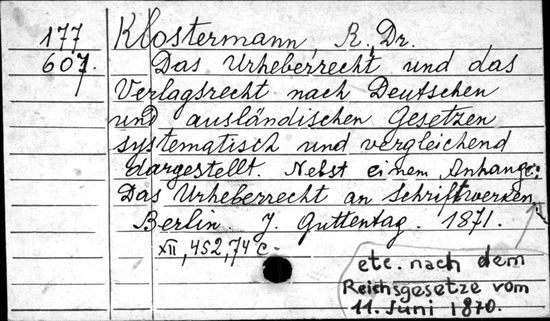 177 Klostermann, R., Dr.
607. Das Urheberrecht und das
Verlagsrecht nach Deutschen
und ausländischen Gesetzen
systematisch und vergleichend
dargestellt. Nebst einem Anhange:
Das Urheberrecht an Schriftwerken,
Berlin. J. Guttentag. 1871.
XII, 452, 74 c.
etc. nach dem
Reichsgesetze vom
11. Juni 1870.